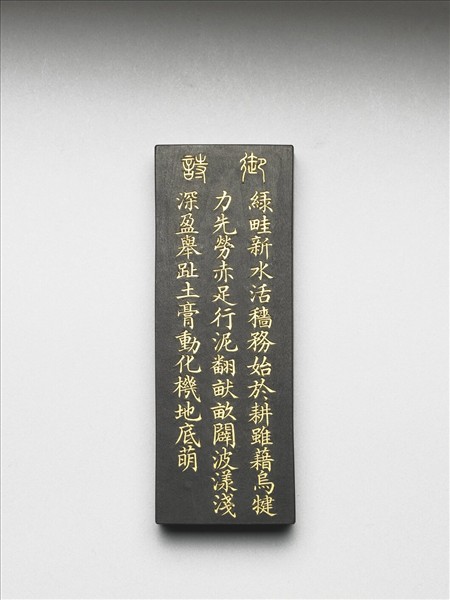 御詩
綠畦新水活穡務始於耕雖藉烏犍
力先勞赤足行泥翻畎畝闢波漾淺
深盈舉趾土膏動化機地底萌